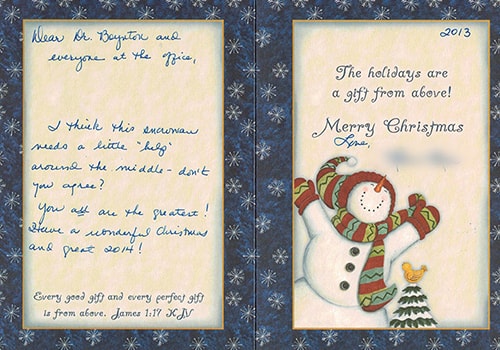 Dear Dr. Boynton and
everyone at the office,
I think this snowman
needs a little "help"
around the middle - don't
you agree?
You all are the greatest!
Have a wonderful Christmas
and great 2014!
Every good gift and every perfect gift
is from above. James 1:17 KJV
2013
The holidays are
a gift from above!
Merry Christmas
Love,